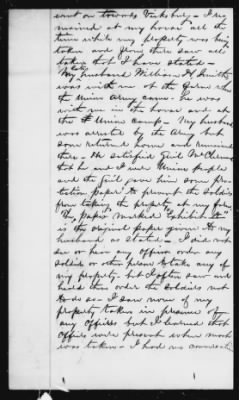 went on towards Vicksburg - I re-
mained at my home all the
time while my property was being
taken and from there saw all
taken that I have stated -
My late husband William H Smith
was with me at the Gelson when
the Union Army came - he was
with me in the house and at
the Union camp - My husband
was arrested by the Army but
soon returned home and remained
there - He satisfied Genl McClernand
that he and I were Union people
and the Genl gave him some pro-
tection paper to prevent the soldiers
from taking the property at my
The "paper" marked "Exhibit A"
is the original paper given to my
husband as stated - I did not
see or hear any officer order any
soldier or other person to take any of
my property. but I often saw and
heard them order the soldiers not
to do so - I saw none of my
property taken in presence of
any officers but I learned that
officers were present when much
was taken - I had no